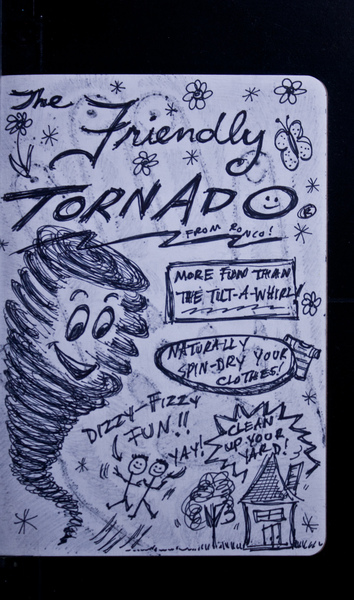 The
Friendly
TORNADO®
FROM RONCO!
MORE FUN THAN
THE TILT-A-WHIRL!
NATURALLY
SPIN-DRY YOUR
CLOTHES!
DIZZY-FIZZY
FUN!!
YAY!
CLEAN
UP YOUR
YARD!